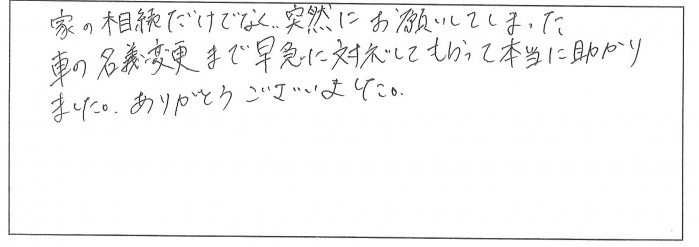 家の相続だけでなく、突然にお願いしてしまった
車の名義変更まで早急に対応してもらって本当に助かり
ました。ありがとうございました。